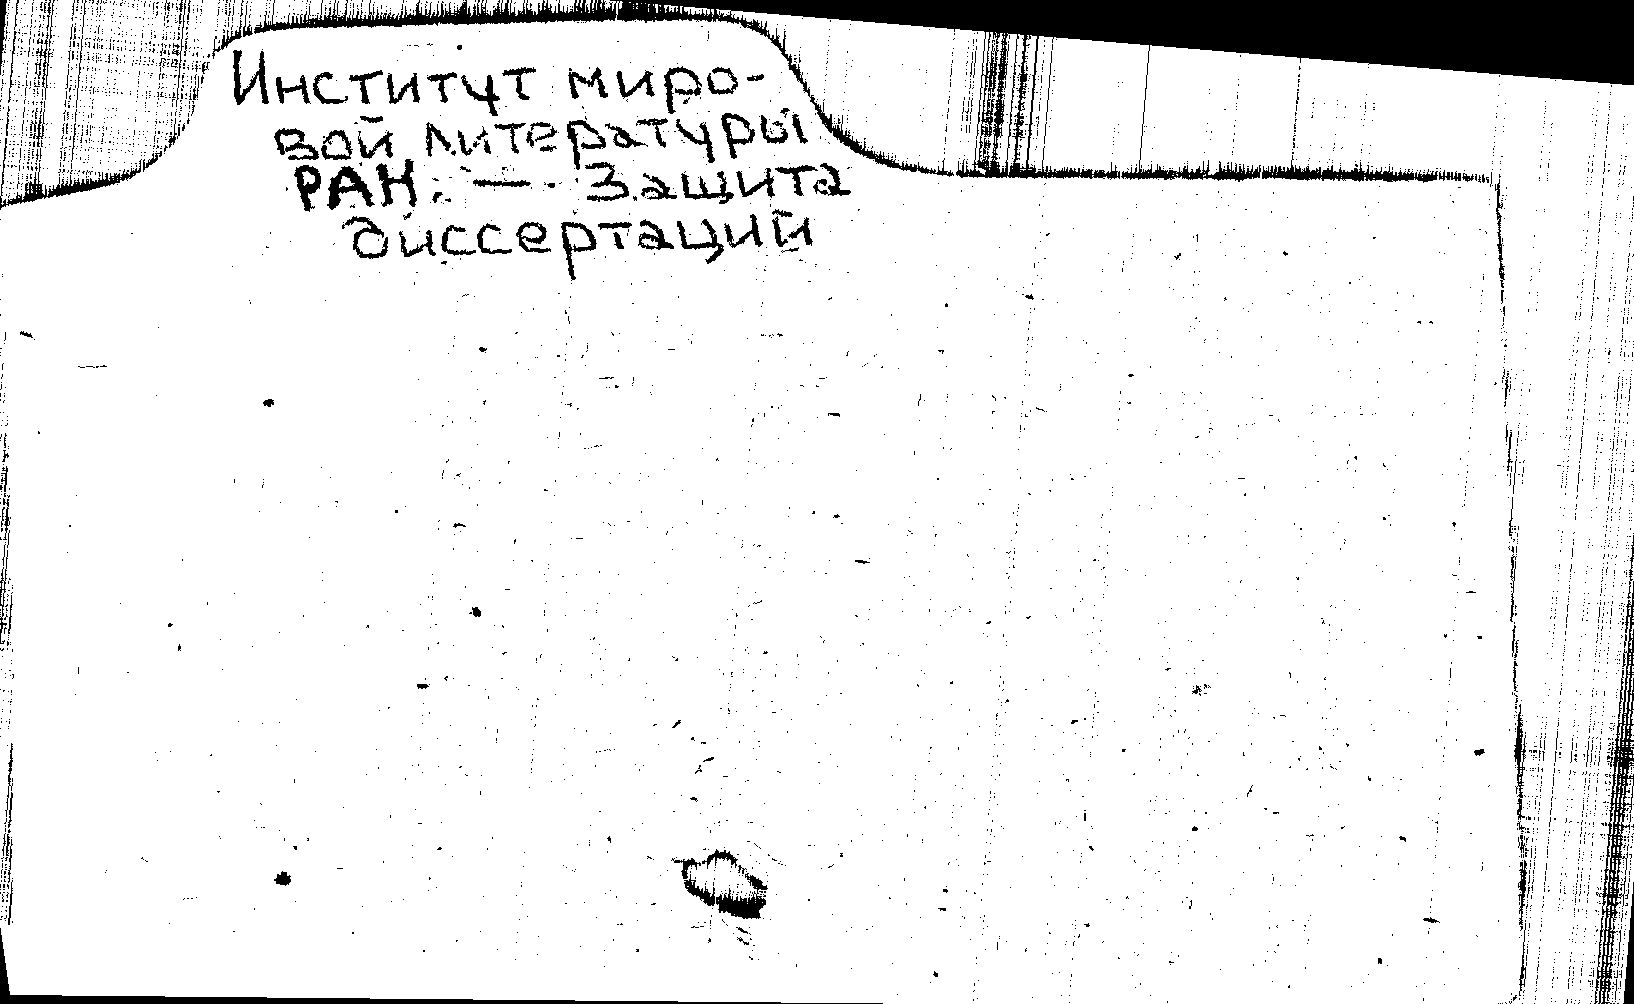 Институт миро-
вой литературы
РАН. — Защита
диссертаций